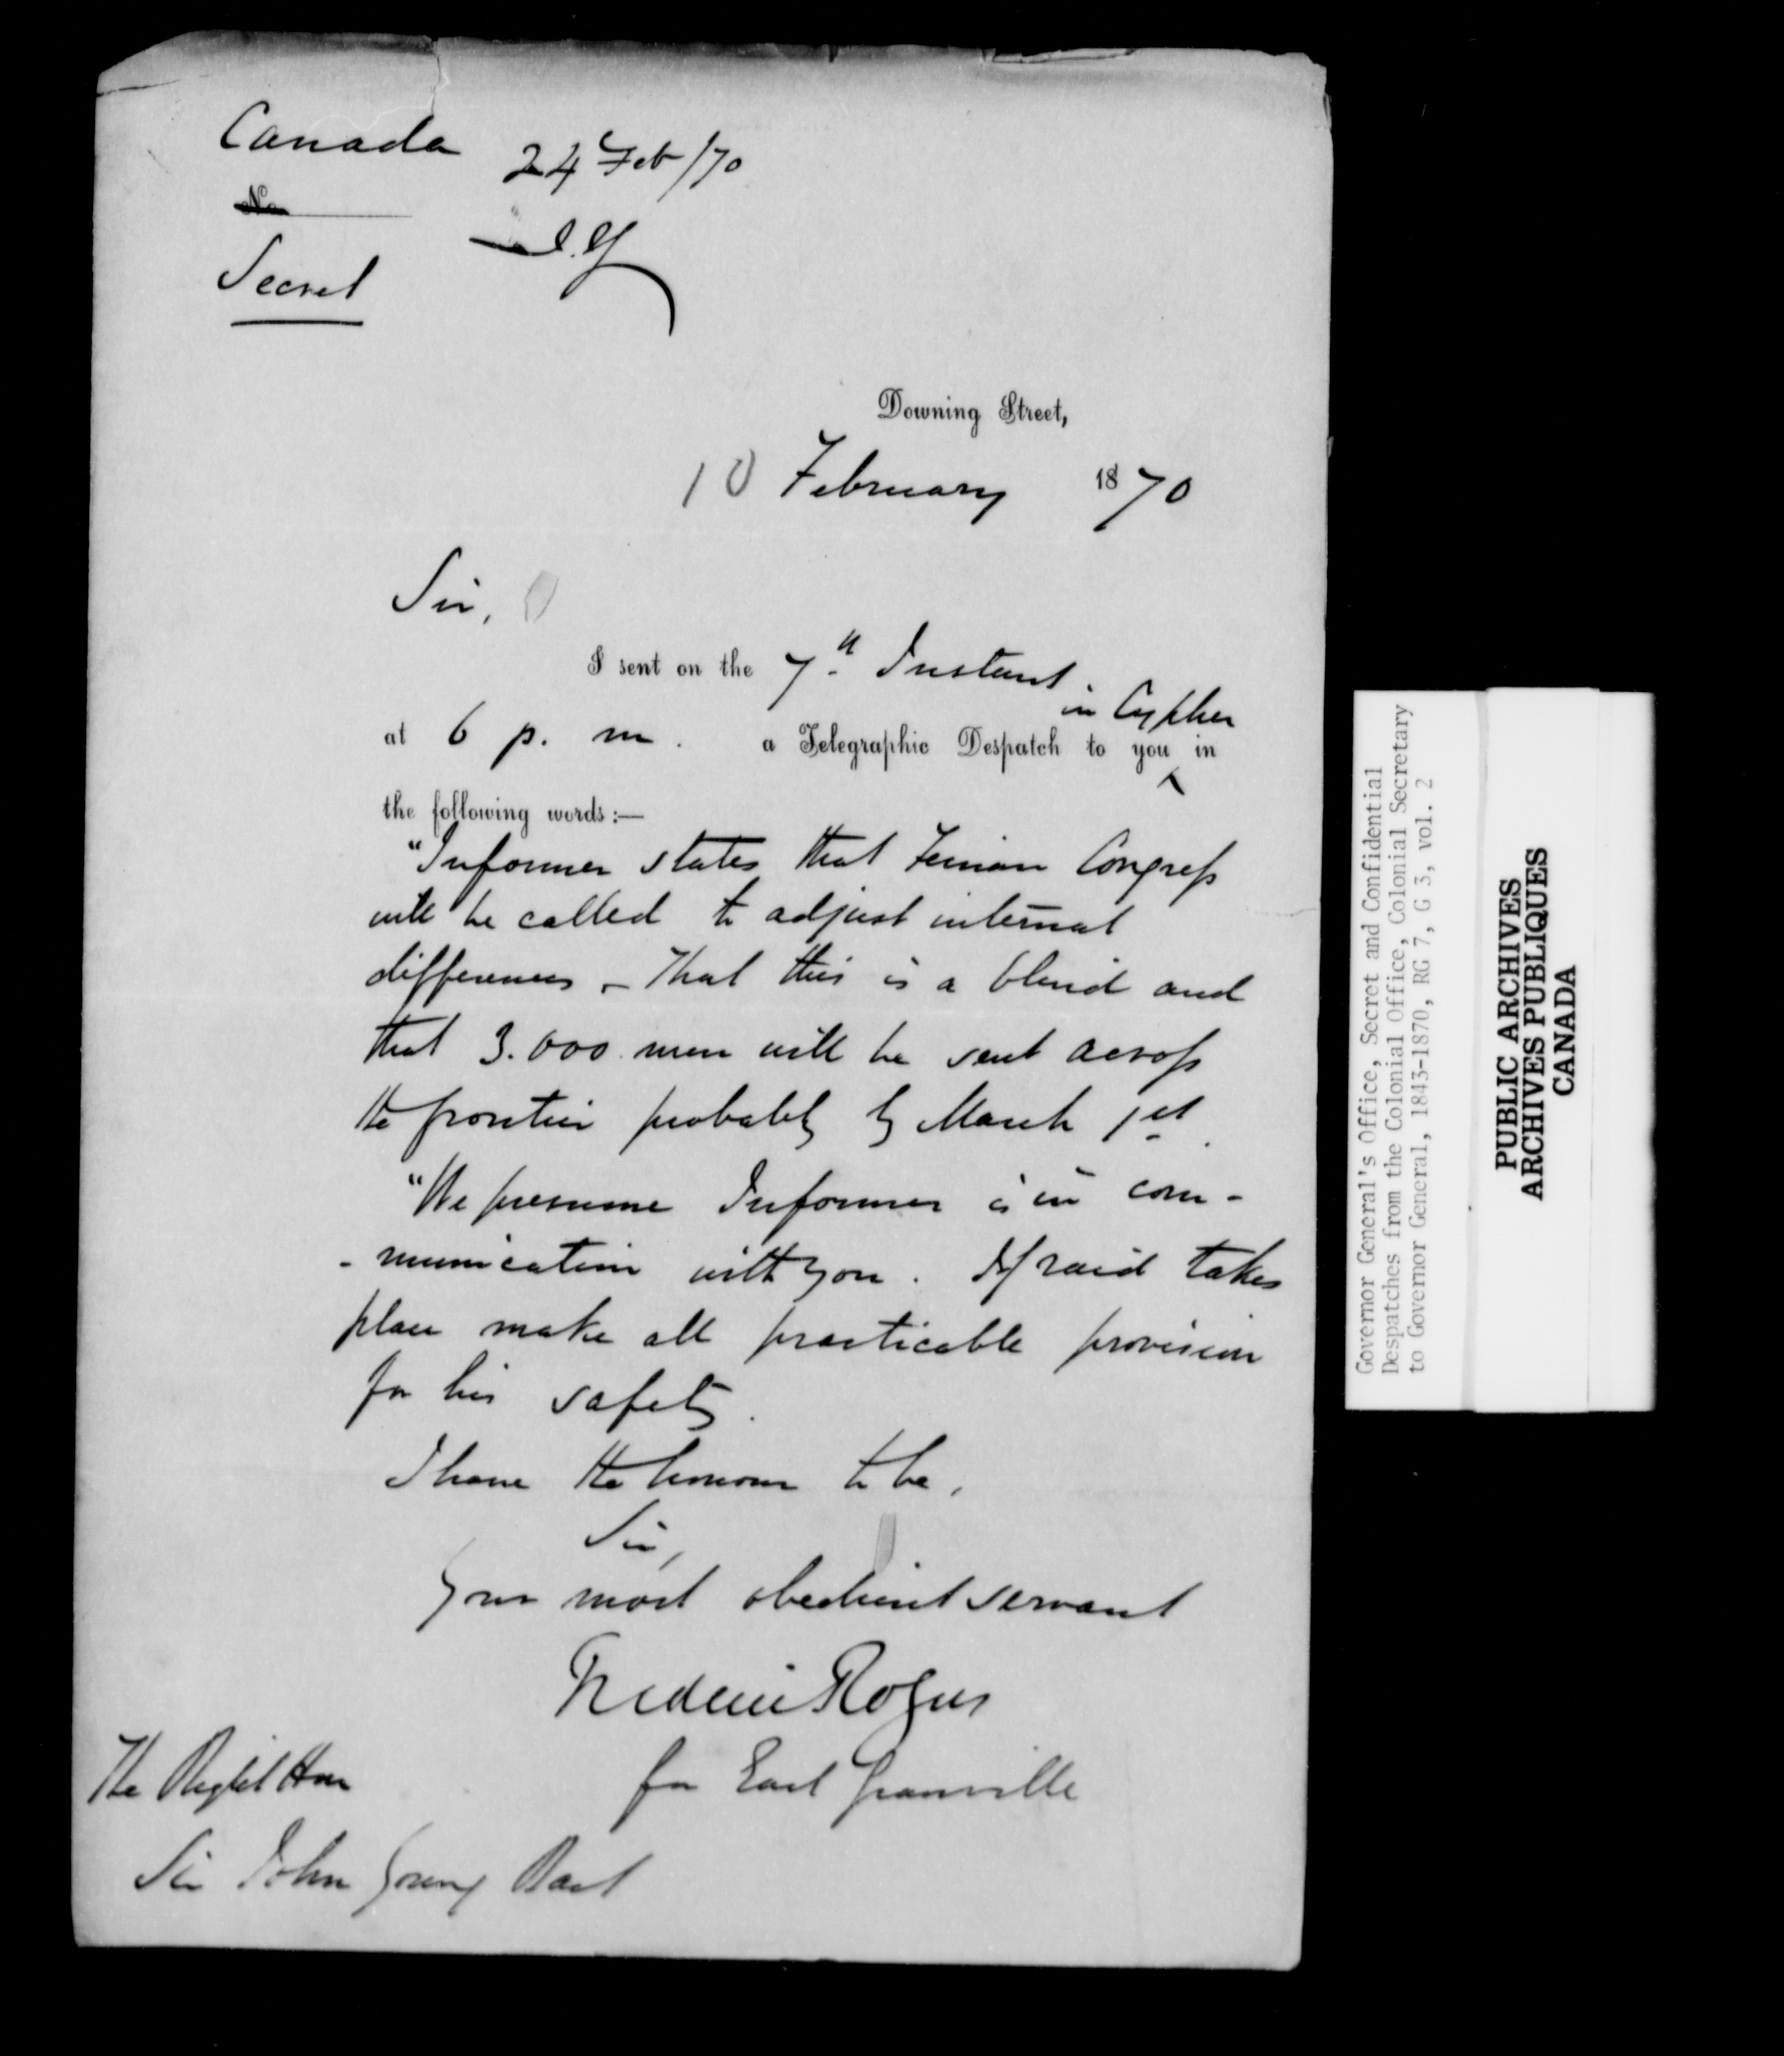 Canada 24 Feb/70
No
Secret
Downing Street,
10 February 1870
Sir,
I sent on the 7th Instant.
in Cypher
at 6 p. m. a Telegraphic Despatch to you in
the following words:—
"Informer states that Fenian Congress
will be called to adjust internal
differences – That this is a blind and
that 3.000 men will be sent across
the frontier probably by March 1st.
"We presume Informer is in com-
-munication with you. If raid takes
place make all practicable provision
for his safety.
I have the honour to be,
Sir,
Your most obedient servant
Frederic Rogers
for Earl Granville
The Right Hon
Sir John Young Bart
Governor General's Office, Secret and Confidential
Despatches from the Colonial Office, Colonial Secretary
to Governor General, 1843-1870, RG 7, G 3, vol. 2
PUBLIC ARCHIVES
ARCHIVES PUBLIQUES
CANADA